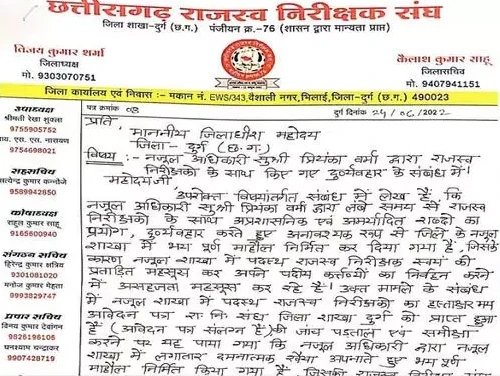 छत्तीसगढ़ राजस्व निरीक्षक संघ
जिला शाखा-दुर्ग (छ.ग.) पंजीयन क्र.-76 (शासन द्वारा मान्यता प्राप्त)
विजय कुमार शर्मा
जिलाध्यक्ष
मो. 9303070751
कैलाश कुमार साहू
जिलासचिव
मो. 9407941151
जिला कार्यालय एवं निवास :- मकान नं. EWS/343, वैशाली नगर, भिलाई, जिला-दुर्ग (छ.ग.) 490023
उपाध्यक्ष
श्रीमती रेखा शुक्ला
9755905752
वाय. एस. एस. नारायण
9754698021
सहसचिव
सत्येन्द्र कुमार कन्नौजे
9589942850
कोषाध्यक्ष
राहुल कुमार साहू
9165600940
संगठन सचिव
हिरेन्द्र कुमार क्षत्रिय
9301081020
मनोज कुमार मेहता
9993829747
प्रचार सचिव
विनय कुमार देवांगन
9826196105
घनश्याम चन्द्राकर
9907428719
पत्र क्रमांक 03
दुर्ग दिनांक 24/06/2022
प्रति,
माननीय जिलाधीश महोदय
जिला - दुर्ग (छ.ग.)
विषय :- नजूल अधिकारी सुश्री प्रियंका वर्मा द्वारा राजस्व
निरीक्षकों के साथ किए गए दुर्व्यवहार के संबंध में।
महोदय जी
उपरोक्त विषयांतर्गत संबंध में लेख है, कि
नजूल अधिकारी सुश्री प्रियंका वर्मा द्वारा लंबे समय से राजस्व
निरीक्षकों के साथ अप्रशासनिक एवं अमर्यादित शब्दों का
प्रयोग, दुर्व्यवहार करते हुए अनावश्यक रूप से जिले के नजूल
शाखा में भय पूर्ण माहौल निर्मित कर दिया गया है, जिसके
कारण नजूल शाखा में पदस्थ राजस्व निरीक्षक स्वयं को
प्रताड़ित महसूस कर अपने पदीय कर्तव्यों का निर्वहन करने
में असहजता महसूस कर रहे हैं। उक्त मामले के संबंध
में नजूल शाखा में पदस्थ राजस्व निरीक्षकों का हस्ताक्षर मय
आवेदन पत्र रा. नि. संघ जिला शाखा दुर्ग को प्राप्त हुआ
है (आवेदन पत्र संलग्न है) की जांच पड़ताल एवं समीक्षा
करने पर यह पाया गया कि नजूल अधिकारी द्वारा नजूल
शाखा में लगातार दमनात्मक रवैया अपनाते हुए भय पूर्ण
माहौल निर्मित किया गया है, जिसकी राजस्व निरीक्षक संघ